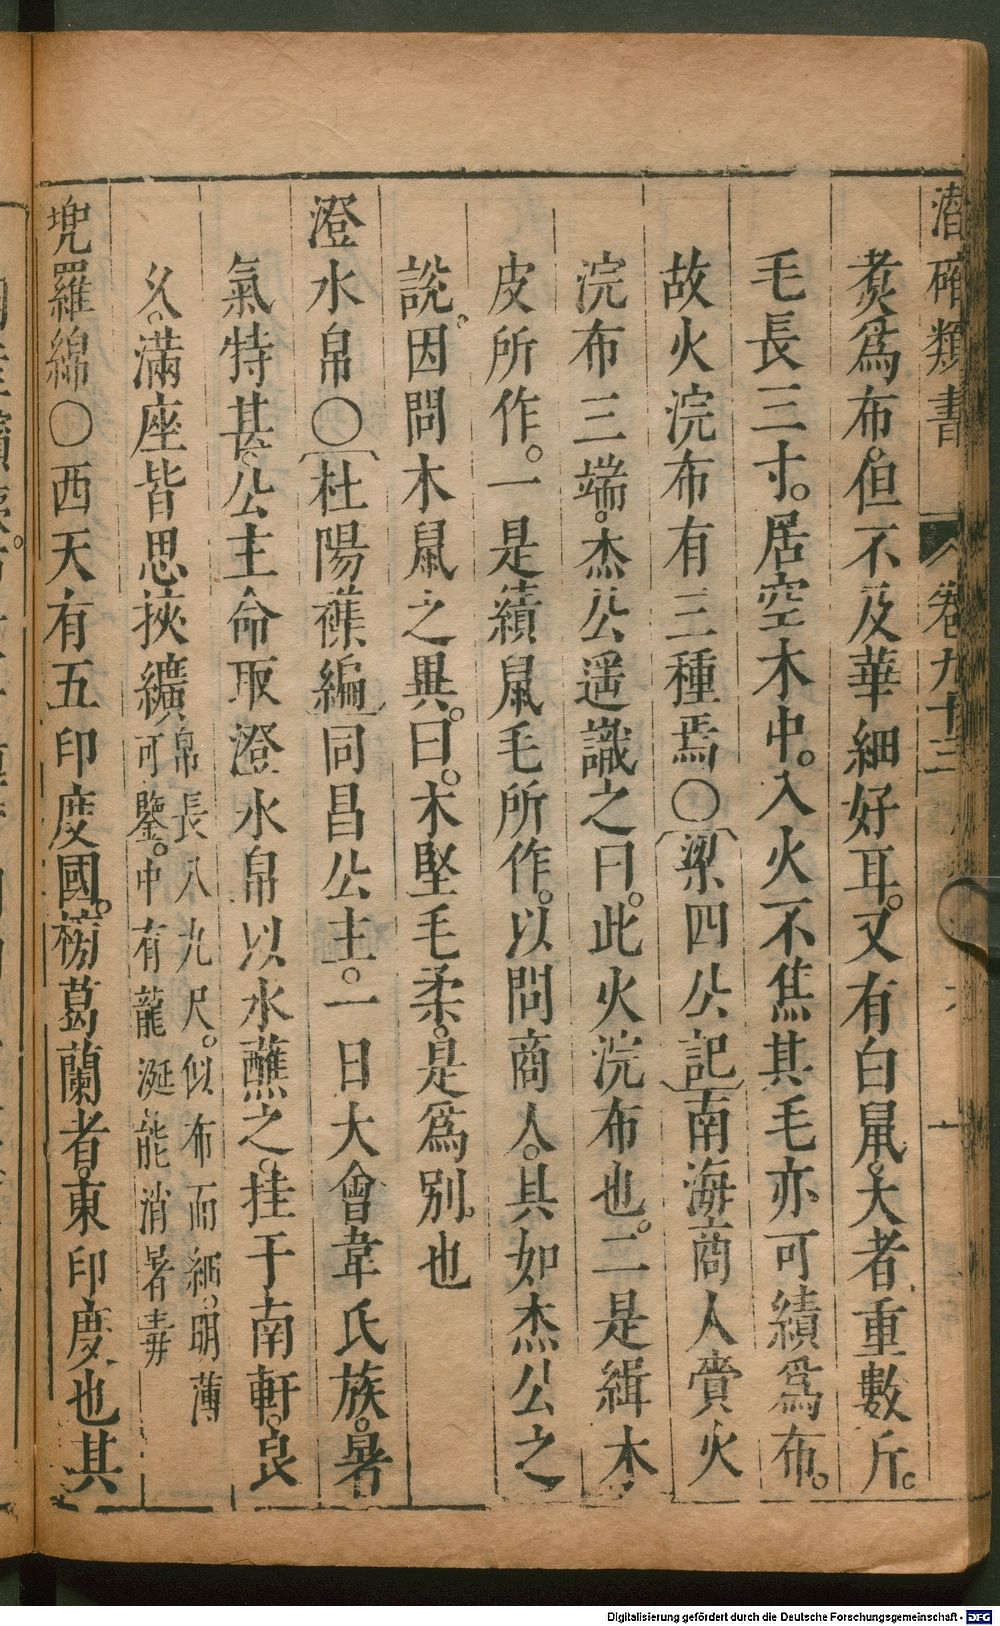 潛確類書 卷九十三
煑爲布。但不及華細好耳。又有白鼠。大者重數斤。
毛長三寸。居空木中。入火不焦其毛亦可績爲布。
故火浣布有三種焉〇〔梁四公記〕南海商人賫火
浣布三端。杰公遥識之曰。此火浣布也。二是緝木
皮所作。一是績鼠毛所作。以問商人。具如杰公之
說。因問木鼠之異。曰。木堅毛柔。是爲别也
澄水帛〇〔杜陽雜編〕同昌公主。一日大會韋氏族。暑
氣特甚。公主命取澄水帛以水蘸之。挂于南軒。良
久。滿座皆思挾纊帛長八九尺。似布而細。明薄
可鑒。中有龍涎能消暑毒
兠羅綿〇西天有五印度國。榜葛蘭者。東印度也其
Digitalisierung gefördert durch die Deutsche Forschungsgemeinschaft - DFG